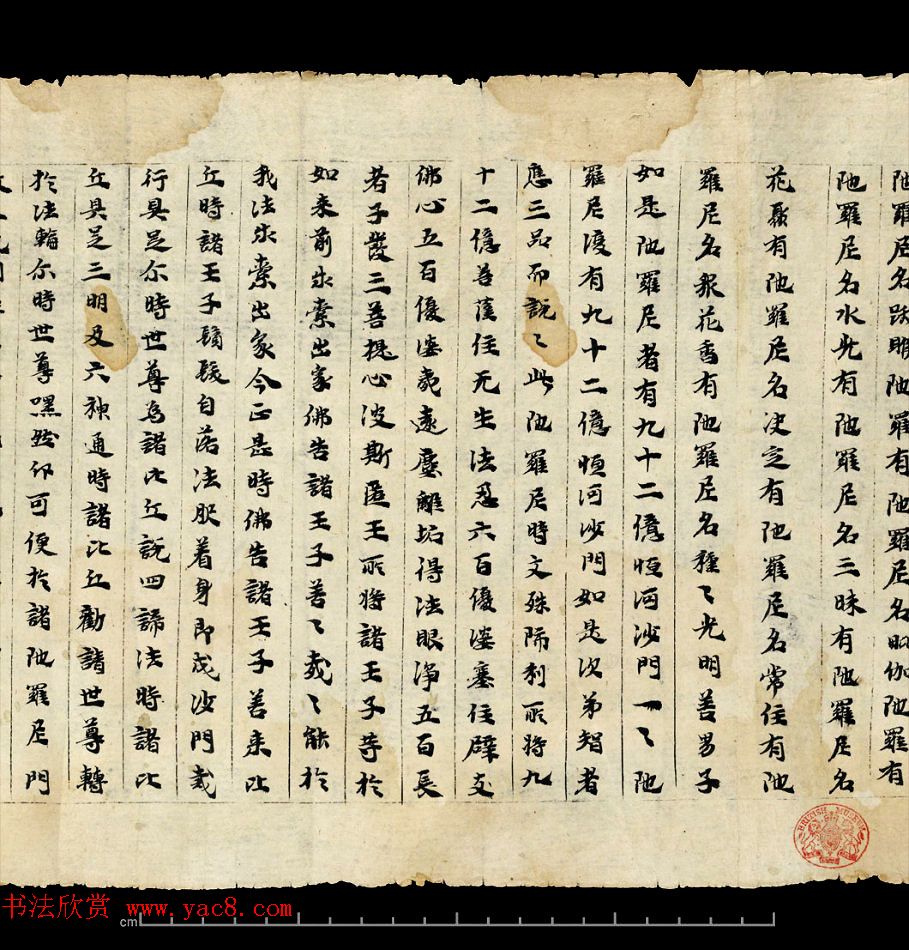 陁羅尼名跋睺陁羅有陁羅尼名毗伽陁羅有
陁羅尼名水光有陁羅尼名三昧有陁羅尼名
花聚有陁羅尼名决定有陁羅尼名常住有陁
羅尼名衆花香有陁羅尼名種〻光明善男子
如是陁羅尼者有九十二億恒河沙門一〻陁
羅尼復有九十二億恒河沙門如是次第智者
應三品而說〻此陁羅尼時文殊師利所將九
十二億菩薩住无生法忍六百優婆塞住辟支
佛心五百優婆夷遠塵離垢得法眼淨五百長
者子發三菩提心波斯匿王所將諸王子等於
如来前求索出家佛告諸王子善〻哉〻能於
我法求索出家今正是時佛告諸王子善来比
丘時諸王子鬚髮自落法服着身即成沙門戒
行具足尒時世尊為諸比丘說四諦法時諸比
丘具足三明及六神通時諸比丘勸請世尊轉
於法輪尒時世尊嘿然印可便於諸陁羅尼門
BRITISH MUSEUM
书法欣赏 www.yac8.com
cm